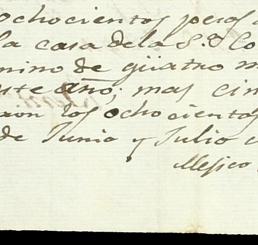 ochocientos pesos
la casa de la S.ª Co
mino de güatro m
ste año; mas cin
ron los ochocientos
de Junio y Julio
Mexico